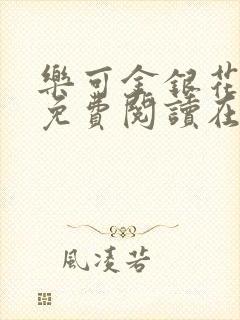 樂可金銀花
免費閱讀在
風凌若